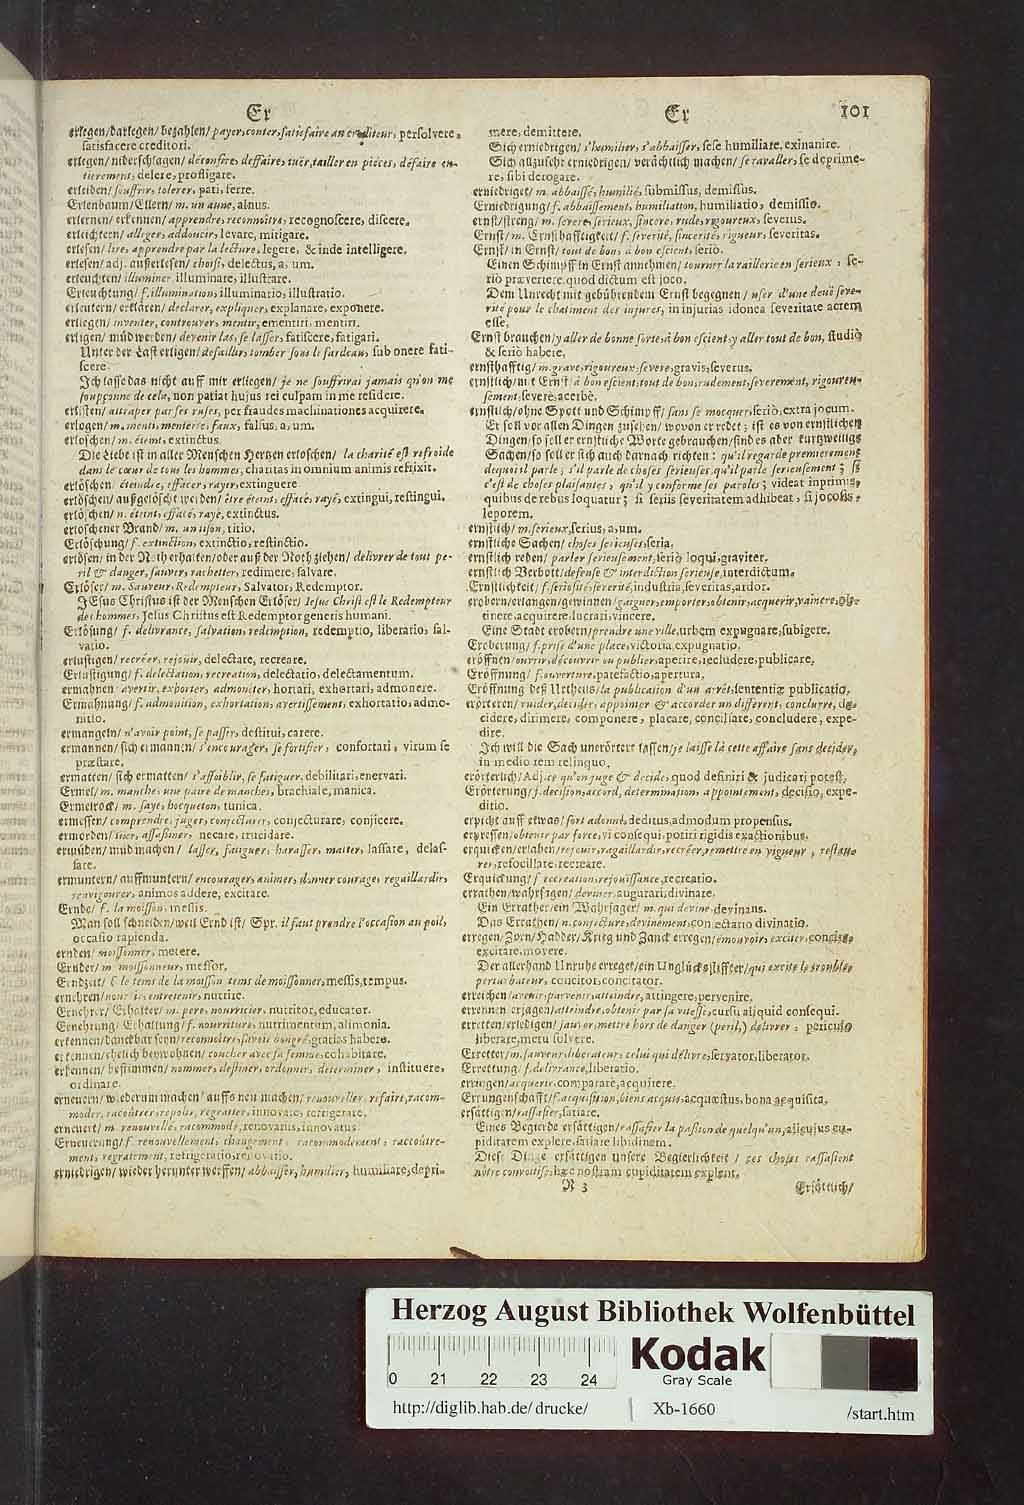 Er
Er
101
erlegen/ darlegen/ bezahlen/ payer, conter, satisfaire an crediteur, persolvere,
satisfacere creditori.
erlegen/ niderschlagen/ déconfire, deffaire, tuër, tailler en pieces, défaire en-
tierement, delere, profligare.
erleiden/ souffrir, tolerer, pati, ferre.
Erlenbaum/ Ellern/ m. un aune, alnus.
erlernen/ erkennen/ apprendre, reconnoître, recognoscere, discere.
erleichtern/ alleger, addoucir, levare, mitigare.
erlesen/ lire, apprendre par la lecture, legere, & inde intelligere.
erlesen/ adj. außerlesen/ choisi, delectus, a, um.
erleuchten/ illuminer, illuminare, illustrare.
Erleuchtung/ f. illumination, illuminatio, illustratio.
erleutern/ erklären/ declarer, expliquer, explanare, exponere.
erliegen/ inventer, controuver, mentir, ementiri, mentiri.
erligen/ müd werden/ devenir las, se lasser, fatiscere, fatigari.
Unter der Last erligen/ defaillir, tomber sous le fardeau, sub onere fati-
scere.
Ich lasse das nicht auff mir erliegen/ je ne souffrirai jamais qu'on me
soupçonne de cela, non patiar hujus rei culpam in me residere.
erlisten/ attraper par ses ruses, per fraudes machinationes acquirere.
erlogen/ m. menti, menterie, faux, falsus, a, um.
erloschen/ m. éteint, extinctus.
Die Liebe ist in aller Menschen Hertzen erloschen/ la charité est refroide
dans le cœur de tous les hommes, charitas in omnium animis refrixit.
erlöschen/ éteindre, effacer, rayer, extinguere
erlöschen/ außgelöscht werden/ être éteint, effacé, rayé, extingui, restingui.
erlöschen/ n. éteint, effacé, rayé, extinctus.
erlöschener Brand/ m. un tison, titio.
Erlöschung/ f. extinction, extinctio, restinctio.
erlösen/ in der Noth erhalten/ oder auß der Noth ziehen/ delivrer de tout pe-
ril & danger, sauver, rachetter, redimere, salvare.
Erlöser/ m. Sauveur, Redempteur, Salvator, Redemptor.
JEsus Christus ist der Menschen Erlöser/ Iesus Christ est le Redempteur
des hommes, Jesus Christus est Redemptor generis humani.
Erlösung/ f. delivrance, salvation, redemption, redemptio, liberatio, sal-
vatio.
erlustigen/ recréer, rejouir, delectare, recreare.
Erlustigung/ f. delectation, recreation, delectatio, delectamentum.
ermahnen/ avertir, exhorter, admonéter, hortari, exhortari, admonere.
Ermahnung/ f. admonition, exhortation, avertissement, exhortatio, admo-
nitio.
ermangeln/ n'avoir point, se passer, destitui, carere.
ermannen/ sich ermannen/ s'encourager, se fortifier, confortari, virum se
præstare.
ermatten/ sich ermatten/ s'affoiblir, se fatiguer, debiliari, enervari.
Ermel/ m. manche, une paire de manches, brachiale, manica.
Ermelrock/ m. saye, hocqueton, tunica.
ermessen/ comprendre, juger, conjecturer, conjecturare, conjicere.
ermorden/ tüer, assassiner, necare, trucidare.
ermüden/ müd machen/ lasser, fatiguer, harasser, matter, lassare, delas-
sare.
ermuntern/ auffmuntern/ encourager, animer, donner courage, regaillardir,
revigourer, animos addere, excitare.
Ernde/ f. la moisson, messis.
Man soll schneiden/ weil Ernd ist/ Spr. il faut prendre l'occasion au poil,
occasio rapienda.
ernden/ moissonner, metere.
Ernder/ m. moissonneur, messor.
Erndzeit/ f. le tems de la moisson, tems de moissonner, messis, tempus.
ernehren/ nourrir, entretenir, nutrire.
Ernehrer/ Erhalter/ m. pere, nourricier, nutritor, educator.
Ernehrung/ Erhaltung/ f. nourriture, nutrimentum, alimonia.
erkennen/ danckbar seyn/ reconnoître, savoir bon gré, gratias habere.
erkennen/ ehelich beywohnen/ coucher avec sa femme, cohabitare.
erkennen/ bestimmen/ nommer, destiner, ordenner, determiner, instituere,
ordinare.
erneuern/ wiederum machen/ auffs neu machen/ renouveller, refaire, racom-
moder, racoûtrer, repolir, regratter, innovare, refrigerare.
erneuert/ m. renouvellé, racommodé, renovatus, innovatus.
Erneuerung/ f. renouvellement, changement, racommodement, raccoûtre-
ment, regratement, refrigeratio, renovatio.
erniedrigen/ wieder herunter werffen/ abbaisser, humilier, humiliare, depri-
mere, demittere.
Sich erniedrigen/ s'humilier, s'abbaisser, sese humiliare, exinanire.
Sich allzusehr erniedrigen/ verächtlich machen/ se ravaller, se deprime-
re, sibi derogare.
erniedriget/ m. abbaissé, humilié, submissus, demissus.
Erniedrigung/ f. abbaissement, humiliation, humiliatio, demissio.
ernst/ streng/ m. severe, serieux, sincere, rude, rigoureux, severus.
Ernst/ m. Ernsthafftigkeit/ f. severité, sincerité, rigueur, severitas.
Ernst/ in Ernst/ tout de bon, à bon escient, seriò.
Einen Schimpff in Ernst annehmen/ tourner la raillerie en serieux, se-
riò prævertere, quod dictum est joco.
Dem Unrecht mit gebührendem Ernst begegnen/ user d'une deuë seve-
rité pour le chatiment des injures, in injurias idonea severitate acrem
esse.
Ernst brauchen/ y aller de bonne sorte, à bon escient, y aller tout de bon, studiò
& seriò habere.
ernsthafftig/ m. grave, rigoureux, severe, gravis, severus.
ernstlich/ mit Ernst/ à bon escient, tout de bon, rudement, severement, rigoureu-
sement, severè, acerbè.
ernstlich/ ohne Spott und Schimpff/ sans se mocquer, seriò, extra jocum.
Er soll vor allen Dingen zusehen/ wovon er redet; ist es von ernstlichen
Dingen/ so soll er ernstliche Worte gebrauchen/ sind es aber kurtzweilige
Sachen/ so soll er sich auch darnach richten: qu'il regarde premierement
dequoi il parle; s'il parle de choses serieuses, qu'il parle serieusement; si
c'est de choses plaisantes, qu'il y conforme ses paroles; videat inprimis,
quibus de rebus loquatur; si seriis severitatem adhibeat, si jocosis,
leporem.
ernstlich/ m. serieux, serius, a, um.
ernstliche Sachen/ choses serieuses, seria.
ernstlich reden/ parler serieusement, seriò loqui, graviter.
ernstlich Verbott/ defense & interdiction serieuse, interdictum.
Ernstlichkeit/ f. seriosité, severité, industria, severitas, ardor.
erobern/ erlangen/ gewinnen/ gaigner, emporter, obtenir, acquerir, vaincre, ob-
tinere, acquirere, lucrari, vincere.
Eine Stadt erobern/ prendre une ville, urbem expugnare, subigere.
Eroberung/ f. prise d'une place, victoria, expugnatio.
eröffnen/ ouvrir, découvrir ou publier, aperire, recludere, publicare.
Eröffnung/ f. ouverture, patefactio, apertura.
Eröffnung deß Urtheils/ la publication d'un arrêt, sententiæ publicatio.
erörteren/ vuider, decider, appointer & accorder un different, conclurre, de-
cidere, dirimere, componere, placare, conciliare, concludere, expe-
dire.
Ich will die Sach unerörtert lassen/ je laisse là cette affaire sans decider,
in medio rem relinquo.
erörterlich/ Adj. ce qu'on juge & decide, quod definiri & judicari potest.
Erörterung/ f. decision, accord, determination, appointement, decisio, expe-
ditio.
erpicht auff etwas/ fort adonné, deditus, admodum propensus.
erpressen/ obtenir par force, vi consequi, potiri rigidis exactionibus.
erquicken/ erlaben/ rejouir, ragaillardir, recréer, remettre en vigueur, restau-
rer, refocillare, recreare.
Erquickung/ f. recreation, rejouissance, recreatio.
errathen/ wahrsagen/ deviner, augurari, divinare.
Ein Errather/ ein Wahrsager/ m. qui devine, devinans.
Das Errathen/ n. conjecture, devinement, conjectatio divinatio.
erregen/ Zorn/ Hadder/ Krieg und Zanck erregen/ émouvoir, exciter, concire,
excitare, movere.
Der allerhand Unruhe erreget/ ein Unglücksstiffter/ qui excite les troubles,
perturbateur, concitor, concitator.
erreichen/ avenir, parvenir, atteindre, attingere, pervenire.
errennen/ erjagen/ atteindre, obtenir par sa vitesse, cursu aliquid consequi.
erretten/ erledigen/ sauver, mettre hors de danger (peril,) delivrer, periculo
liberare, metu solvere.
Erretter/ m. sauveur, liberateur, celui qui délivre, servator, liberator.
Errettung/ f. delivrance, liberatio.
erringen/ acquerir, comparare, acquirere.
Errungenschafft/ f. acquisition, biens acquis, acquæstus, bona acquisita.
ersättigen/ rassasier, satiare.
Eines Begierde ersättigen/ rassasier la passion de quelqu'un, alicujus cu-
piditatem explere, satiare libidinem.
Diese Dinge ersättigen unsere Begierlichkeit/ ces choses rassasient
nôtre convoitise, hæc nostram cupiditatem explent.
N 3
Ersättlich/
Herzog August Bibliothek Wolfenbüttel
0 21 22 23 24
Kodak
Gray Scale
http://diglib.hab.de/drucke/ Xb-1660 /start.htm